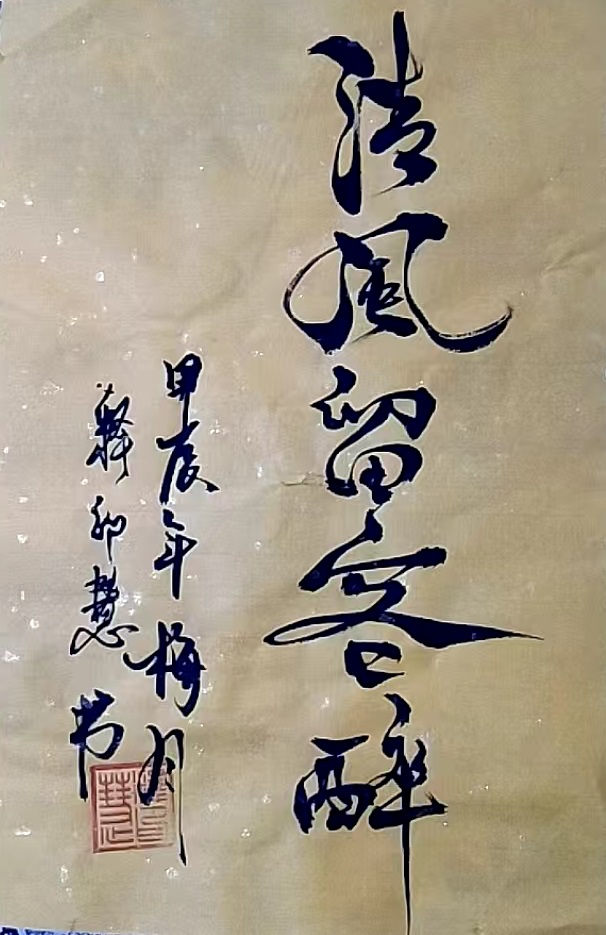 清風留客醉
甲辰年梅月
釋印慧书